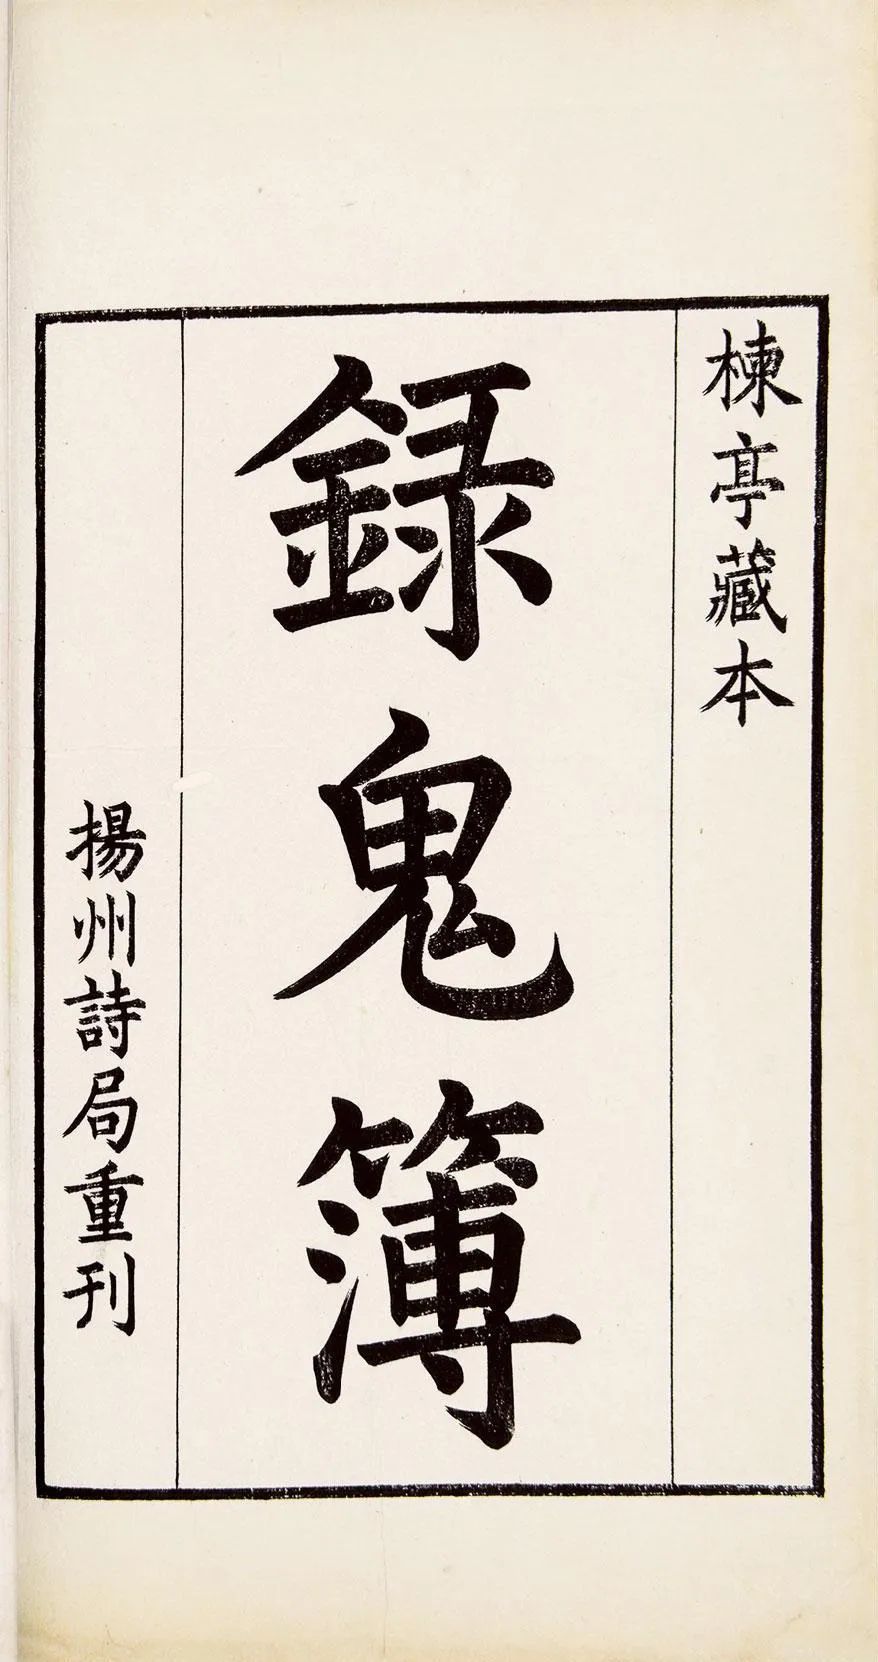 楝亭藏本
録鬼簿
揚州詩局重刊